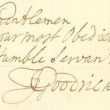 Gentlemen
Your most Obedien
Humble Servan
Goodric